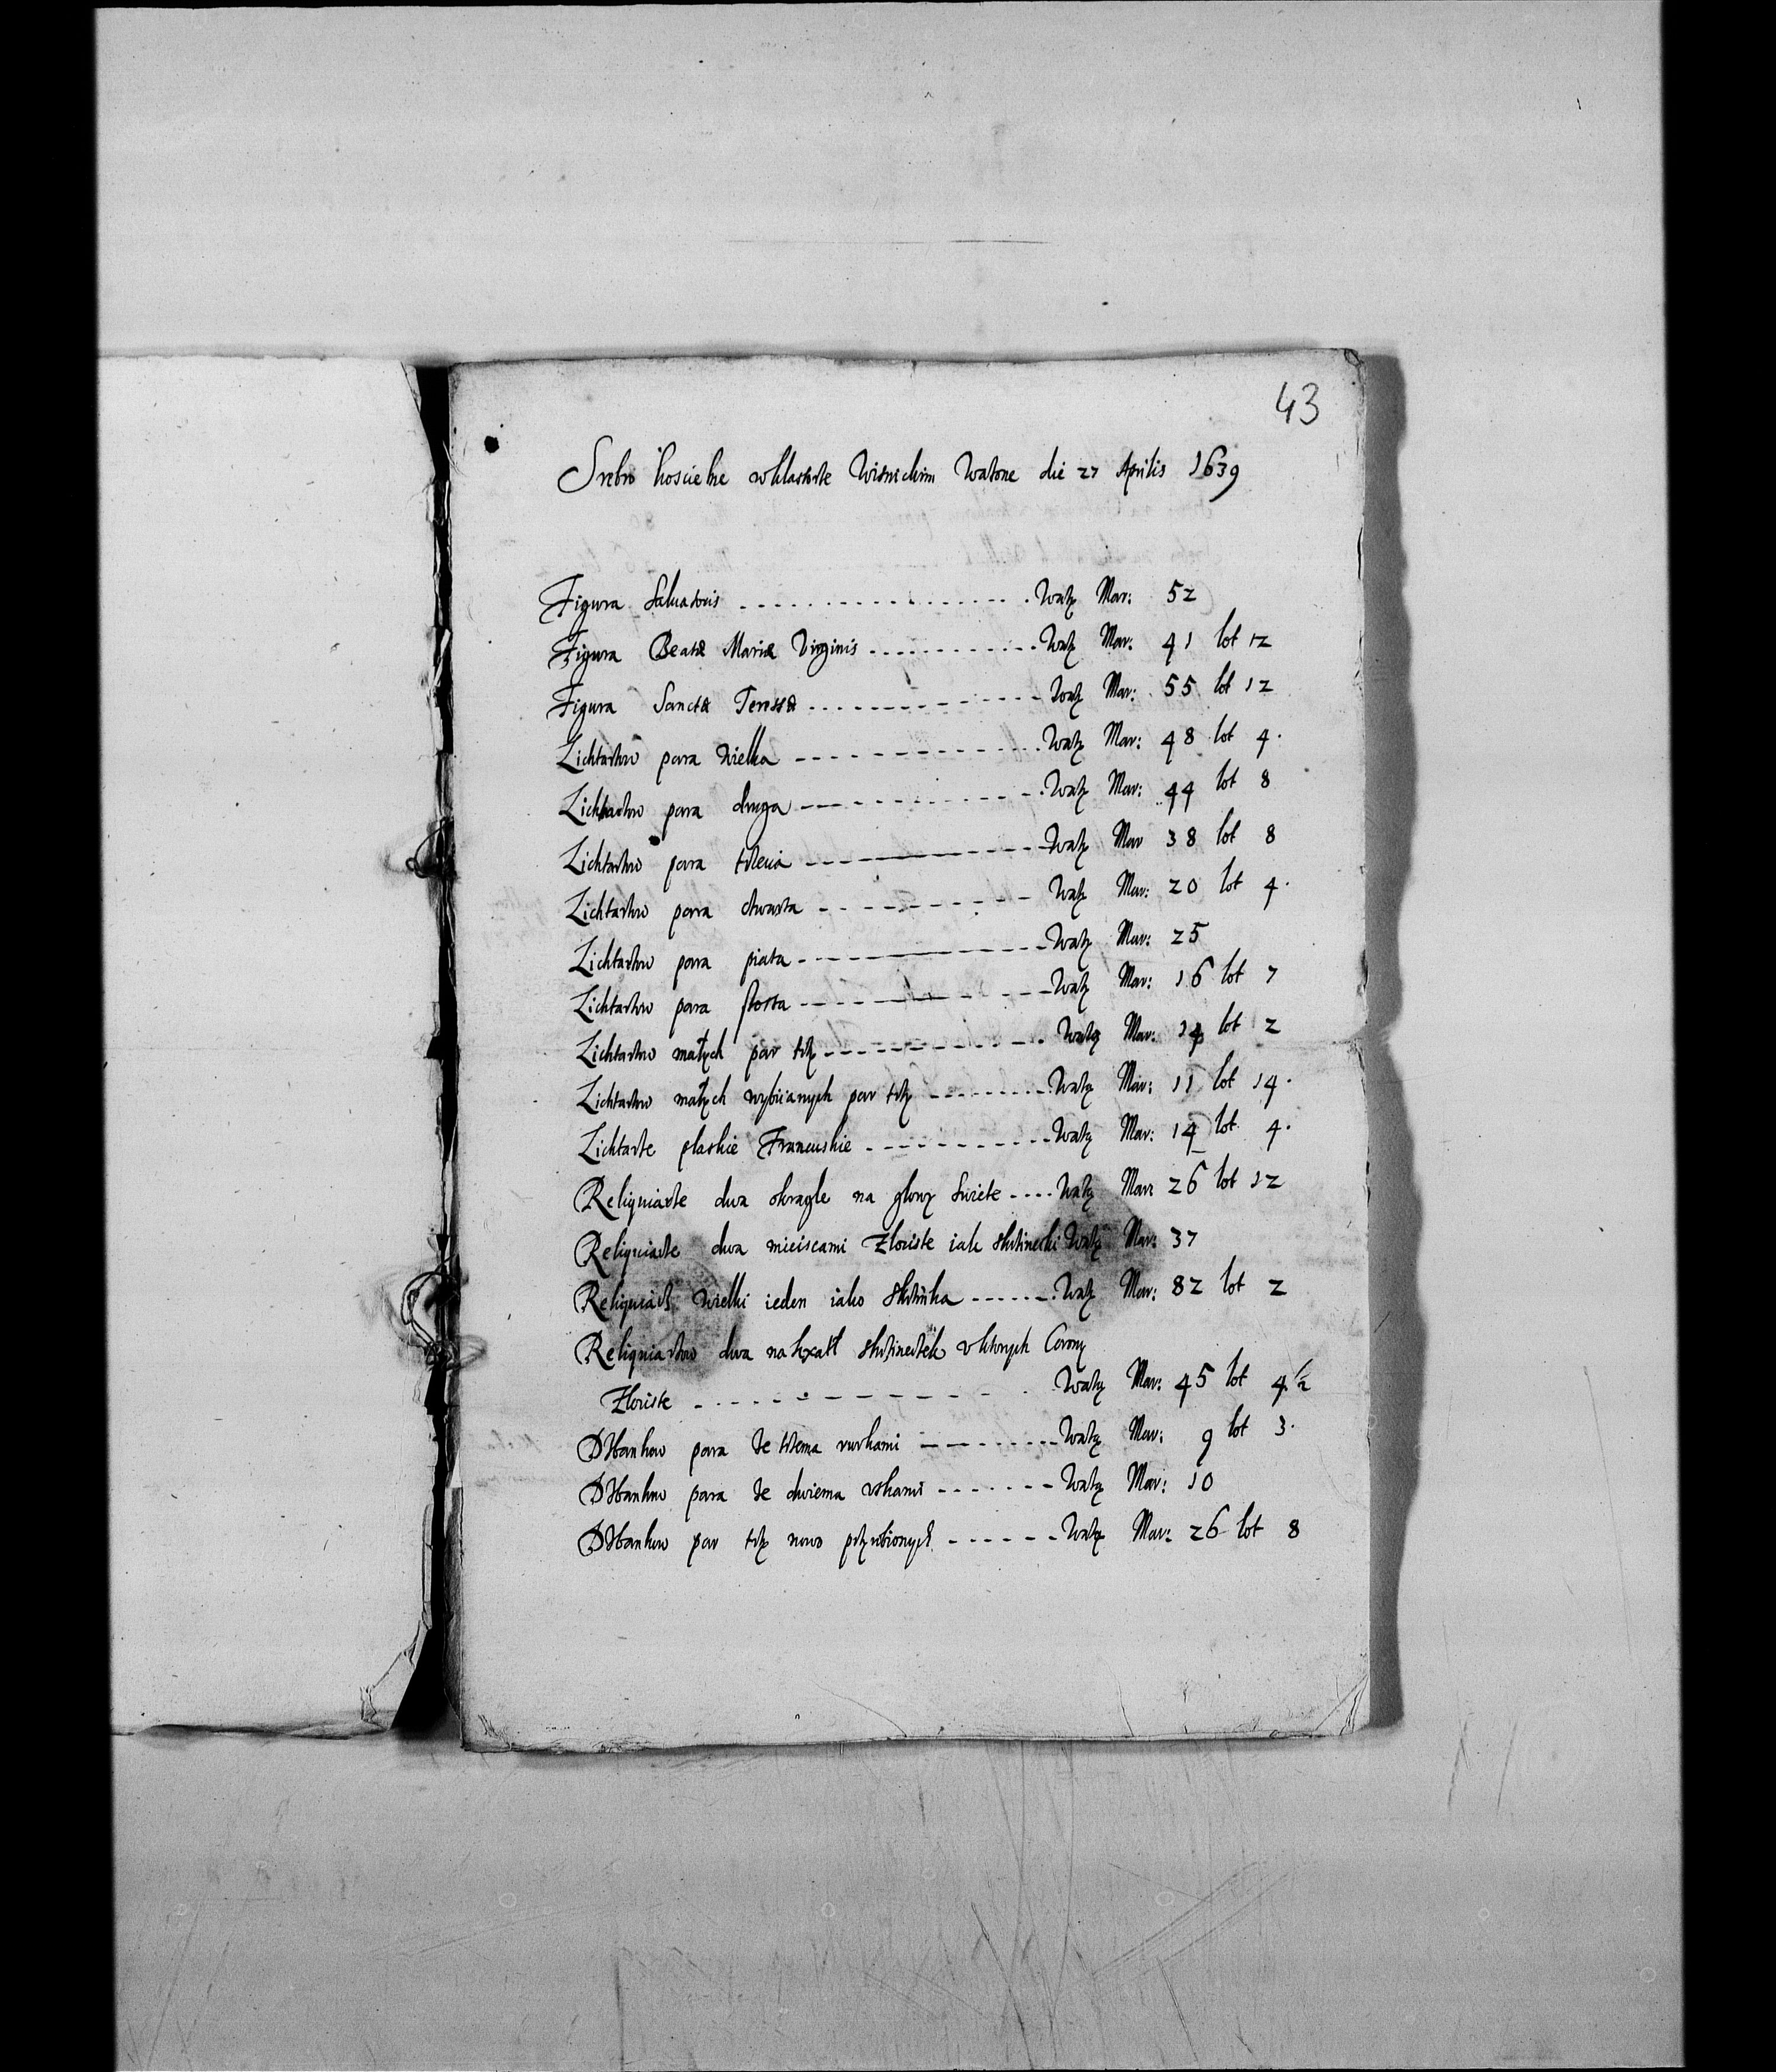 43
Srebro koscielne w klasztorze Wisnickim Wazone die 27 Aprilis 1639
Figura Saluatoris ................... Wazy Mar: 52
Figura Beatæ Mariæ Virginis ............ Wazy Mar: 41 lot 12
Figura Sanctæ Teressæ ............... Wazy Mar: 55 lot 12
Lichtarzow para Wielka ............... Wazy Mar: 48 lot 4.
Lichtarzow para druga ............... Wazy Mar: 44 lot 8
Lichtarzow para trzecia ............... Wazy Mar 38 lot 8
Lichtarzow para czwarta ............... Wazy Mar: 20 lot 4.
Lichtarzow para piata ............... Wazy Mar: 25
Lichtarzow para szosta ............... Wazy Mar: 16 lot 7
Lichtarzow małych par trzy ............... Wazą Mar: 14 lot 2
Lichtarzow małych wybiianych par trzy ......... Wazą Mar: 11 lot 14.
Lichtarze płaskie Francuskie ............ Wazą Mar: 14 lot 4.
Reliquiarze dwa okragle na głowy Swiete .... Wazą Mar: 26 lot 12
Reliquiarze dwa mieiscami Złociste iak skrzineczki Wazą Mar: 37
Reliquiarz Wielki ieden iako Skrzinka ...... Wazy Mar: 82 lot 2
Reliquiarzow dwa na kxałt skrzineczek w ktorych Corony
Złociste ............... Wazą Mar: 45 lot 4 ½
Dzbankow para ze trzema rurkami ......... Wazą Mar: 9 lot 3.
Dzbankow para ze dwiema vszkami ....... Wazą Mar: 10
Dzbankow par trzy nowo przerobionych ...... Wazą Mar: 26 lot 8